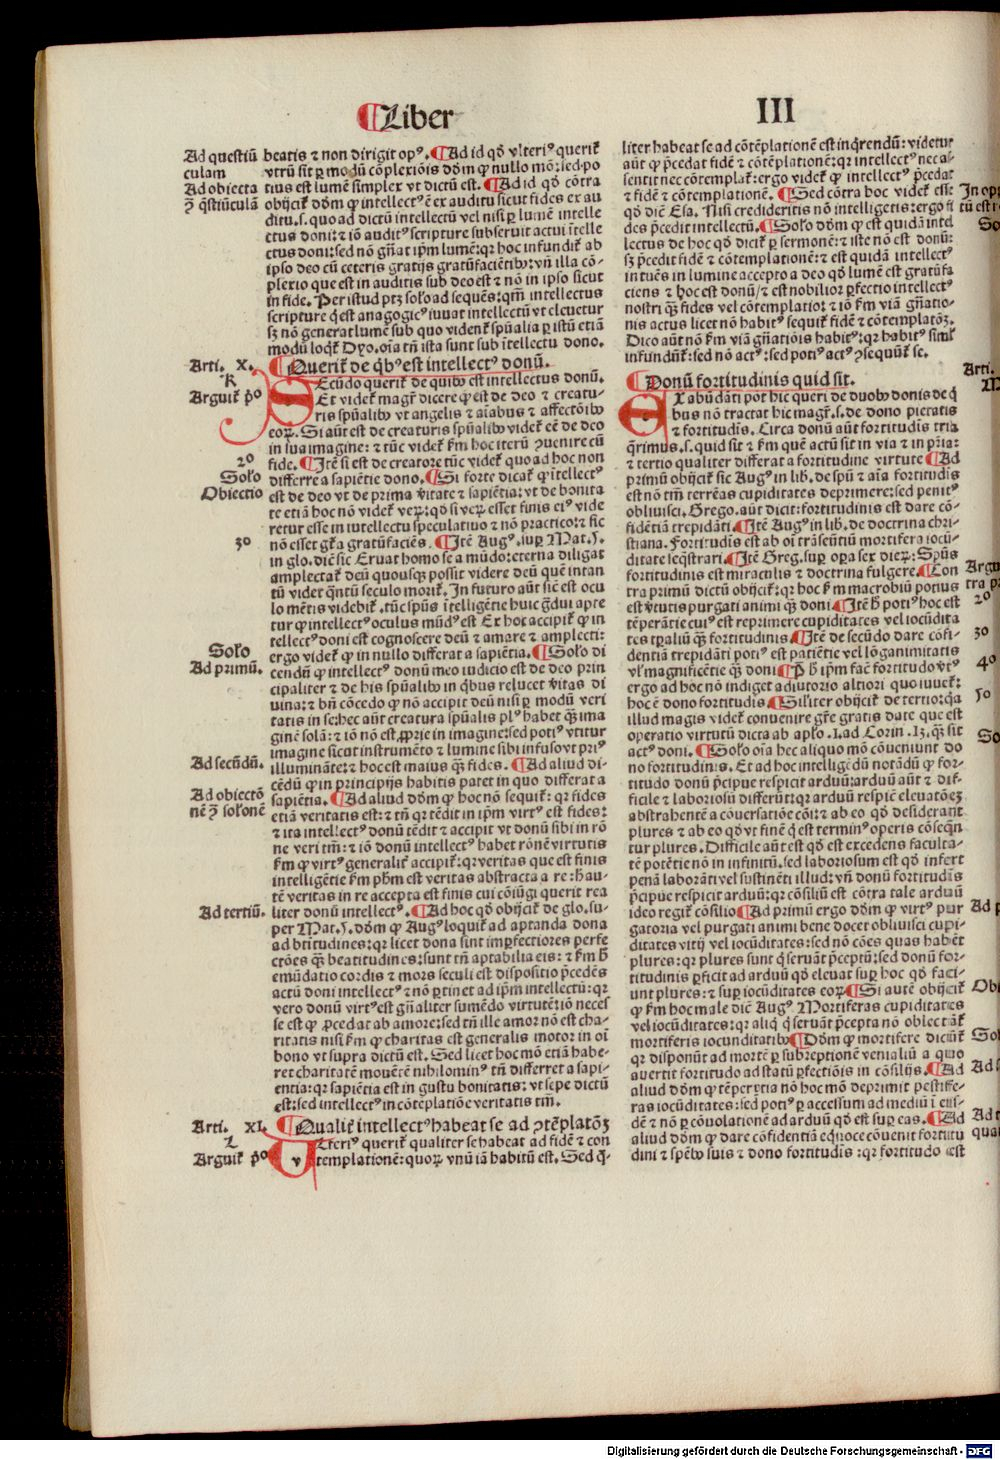 ¶Liber III
Ad questiū
culam
Ad obiecta
ꝫ q̄stiūculā
beatis ⁊ non dirigit opꝰ. ¶Ad id qd̄ vlteriꝰ querit̄
vtrū sit ꝑ modū cōplexiōis dōm ꝙ nullo mō: sed po
tius est lumē simplex vt dictū est. ¶Ad id qd̄ cōtra
obijcit̄ dōm ꝙ intellectꝰ ē ex auditu sicut fides ex au
ditu. s. quo ad dictū intellectū vel nisi ꝑ lumē intelle
ctus doni: ⁊ iō auditꝰ scripture subseruit actui ītelle
ctus doni: sed nō gn̄at ip̄m lumē: qꝛ hoc infundit̄ ab
ipso deo cū ceteris gratijs gratūfaciētibꝰ: vn̄ illa cō-
plexio que est in auditis sub deo est ⁊ nō in ipso sicut
in fide. Per istud ptꝫ solō ad sequēs: qm̄ intellectus
scripture q̄ est anagogicꝰ iuuat intellectū vt eleuetur
sꝫ nō generat lumē sub quo vident̄ spūalia ꝑ istū etiā
modū loqt̄ Dyo. oīa tn̄ ista sunt sub ītellectu dono.
Arti. X.
¶Querit̄ de qbꝰ est intellectꝰ donū.
K
Arguit̄ pº
SEcūdo querit̄ de quibꝰ est intellectus donū.
Et videt̄ magr̄ dicere ꝙ est de deo ⁊ creatu-
ris spūalibꝰ vt angelis ⁊ aīabus ⁊ affectōibꝰ
eoꝝ. Si aūt est de creaturis spūalibꝰ videt̄ eē de deo
in sua imagine: ⁊ tūc videt̄ ẜm hoc iterū ꝯuenire cū
2º
fide. ¶Itē si est de creatore tūc videt̄ quo ad hoc non
Solō
differre a sapiētie dono. ¶Si forte dicat̄ ꝙ ītellectꝰ
Obiectio
est de deo vt de prima v̄itate ⁊ sapiētia: vt de bonita
te etiā hoc nō videt̄ veꝝ: qd̄ si veꝝ esset finis eiꝰ vide
retur esse in intellectu speculatiuo ⁊ nō practico: ⁊ sic
3º
nō esset gr̄a gratūfaciēs. ¶Itē Augꝰ. suꝑ Mat. 5.
in glo. dīc sic Eruat homo se a mūdo: eterna diligat
amplectat̄ deū quousqꝫ possit videre deū quē intan
tū videt qn̄tū seculo morit̄. In futuro aūt sic est ocu
lo mētis videbit̄. tūc spūs ītelligētie huic gd̄ui apte
tur ꝙ intellectꝰ oculus mūdꝰ est Ex hoc accipit̄ ꝙ in
tellectꝰ doni est cognoscere deū ⁊ amare ⁊ amplecti:
Solō
ergo videt̄ ꝙ in nullo differat a sapiētia. ¶Solō di
Ad primū.
cendū ꝙ intellectꝰ donū meo iudicio est de deo prin
cipaliter ⁊ de his spūalibꝰ in qbus relucet v̄itas di
uina: ⁊ bn̄ cōcedo ꝙ nō accipit deū nisi ꝑ modū veri
tatis in se: hec aūt creatura spūalis plꝰ habet qꝫ ima
ginē solā: ⁊ iō nō est ꝓprie in imagine: sed poti᷒ vtitur
imagine sicut instrumēto ⁊ lumine sibi infuso vt priꝰ
Ad secūdū.
illumināte: ⁊ hoc est maius qꝫ fides. ¶Ad aliud di-
cēdū ꝙ in principijs habitis patet in quo differat a
Ad obiectō
nē ꝫ solōnē
sapiētia. ¶Ad aliud dōm ꝙ hoc nō sequit̄: qꝛ fides
etiā veritatis est: ⁊ tn̄ qꝛ tēdit in ip̄m virtꝰ est fides:
⁊ ita intellectꝰ donū tēdit ⁊ accipit vt donū sibi in rō
ne veri tm̄: ⁊ iō donū intellectꝰ habet rōnē virtutis
ẜm ꝙ virtꝰ generalit̄ accipit̄: qꝛ veritas que est finis
intelligētie ẜm pħm est veritas abstracta a re: hau-
tē veritas in re accepta est finis cui cōiūgi querit rea
Ad tertiū.
liter donū intellectꝰ. ¶Ad hoc qd̄ obijcit̄ de glo. su-
per Mat. 5. dōm ꝙ Augꝰ loquit̄ ad aptanda dona
ad btitudines: qꝛ licet dona sint imꝑfectiores perfe
ctōes qꝫ beatitudines: sunt tn̄ aptabilia eis: ⁊ ẜm ħ
emūdatio cordis ⁊ mors seculi est dispositio p̄cedēs
actū doni intellectꝰ ⁊ nō ꝑtinet ad ip̄m intellectū: qꝛ
vero donū virtꝰ est gn̄aliter sumēdo virtutē: iō neces
se est ꝙ ꝓcedat ab amore: sed tn̄ ille amor nō est cha-
ritatis nisi ẜm ꝙ charitas est generalis motor in oī
bono vt supra dictū est. Sed licet hoc mō etiā habe-
ret charitatē mouētē nihilominꝰ tn̄ differret a sapi-
entia: qꝛ sapiētia est in gustu bonitatis: vt sepe dictū
est: sed intellectꝰ in cōtēplatiōe veritatis tm̄.
Arti. XI.
¶Qualit̄ intellectꝰ habeat se ad ꝯtēplatōꝫ
L
Arguit̄ pº
VLteriꝰ querit̄ qualiter se habeat ad fidē ⁊ con
templationē: quoꝝ vnū iā habitū est. Sed q̄-
liter habeat se ad cōtēplationē est inqrendū: videtur
aūt ꝙ p̄cedat fidē ⁊ cōtēplationē: qꝛ intellectꝰ nec as-
sentit nec cōtemplat̄: ergo videt̄ ꝙ intellectꝰ p̄cedat
⁊ fidē ⁊ cōtemplationē. ¶Sed cōtra hoc videt̄ esse
In op
qd̄ dīc Esa. Nisi credideritis nō intelligetis: ergo fi
tū est r
des p̄cedit intellectū. ¶Solō dōm ꝙ est quidā intel
So
lectus de hoc qd̄ dicit̄ ꝑ sermonē: ⁊ iste nō est donū:
sꝫ p̄cedit fidē ⁊ cōtemplationē: ⁊ est quidā intellectꝰ
intuēs in lumine accepto a deo qd̄ lumē est gratūfa
ciens ⁊ hoc est donū/ ⁊ est nobilior ꝑfectio intellectꝰ
nostri qꝫ fides vel cōtemplatio: ⁊ iō ẜm viā gn̄atio-
nis actus licet nō habitꝰ sequit̄ fidē ⁊ cōtemplatōꝫ.
Dico aūt nō ẜm viā gn̄atiōis habitꝰ: qꝛ habitꝰ simł
infundūt̄: sed nō actꝰ: sed potiꝰ actꝰ ꝯsequūt̄ se.
Arti.
¶Donū fortitudinis quid sit.
M
EX abūdāti pōt hic queri de duobꝰ donis de q̄
bus nō tractat hic magr̄. s. de dono pietatis
⁊ fortitudīs. Circa donū aūt fortitudīs tria
q̄rimus. s. quid sit ⁊ ẜm quē actū sit in via ⁊ in pr̄ia:
⁊ tertio qualiter differat a fortitudine virtute ¶Ad
primū obijcit̄ sic Augꝰ in lib. de spū ⁊ aīa fortitudīs
est nō tm̄ terrēas cupiditates deprimere: sed penitꝰ
obliuisci. Grego. aūt dicit: fortitudinis est dare cō-
fidētiā trepidāti. ¶Itē Augꝰ in lib. de doctrina chri-
stiana. Fortitudīs est ab oī trāseūtiū mortifera iocū-
ditate seqstrari. ¶Itē Greg. suꝑ oꝑa sex dieꝝ: Spūs
fortitudinis est miraculis ⁊ doctrina fulgere. ¶Con
Argu
tra primū dictū obijcit̄: qꝛ hoc ẜm macrobiū potius
tra p
est v̄tutis purgati animi qꝫ doni ¶Itē ħ potiꝰ hoc est
2º
tēperātie cuiꝰ est reprimere cupiditates vel iocūdita
tes tꝑaliū qꝫ fortitudinis. ¶Itē de secūdo dare cōfi-
3º
dentiā trepidāti potiꝰ est patiētie vel lōganimitatis
vł magnificētie qꝫ doni ¶P ħ ip̄m facē fortitudo vtꝰ
4º
ergo ad hoc nō indiget adiutorio altiori quo iuuet̄:
hoc ē dono fortitudīs. ¶Sił̄iter obijcit̄ de tertio: qꝛ
5º
illud magis videt̄ conuenire gr̄e gratis date que est
operatio virtutū dicta ab apło. 1. ad Corin. 13. qꝫ sit
So
actꝰ doni. ¶Solō oīa hec aliquo mō cōueniunt do
no fortitudinis. Et ad hoc intelligēdū notādū ꝙ for-
titudo donū p̄cipue respicit arduū: arduū aūt ⁊ dif-
ficile ⁊ laboriosū differūt: qꝛ arduū respic̄ eleuatōeꝫ
abstrahentē a cōuersatiōe cōi: ⁊ ab eo qd̄ desiderant
plures ⁊ ab eo qd̄ vt finē q̄ est terminꝰ operis cōseqn̄
tur plures. Difficile aūt est qd̄ est excedens faculta-
tē potētie nō in infinitū. sed laboriosum est qd̄ infert
penā laborāti vel sustinēti illud: vn̄ donū fortitudīs
p̄cipue respicit arduū: qꝛ cōsiliū est cōtra tale arduū
ideo regit̄ cōsilio ¶Ad primū ergo dōm ꝙ virtꝰ pur
Ad p
gatoria vel purgati animi bene docet obliuisci cupi-
ditates vitij vel iocūditates: sed nō cōes quas habēt
plures: qꝛ plures sunt q̄ seruāt p̄ceptū: sed donū for-
titudinis ꝑficit ad arduū qd̄ eleuat suꝑ hoc qd̄ faci-
unt plures: ⁊ suꝑ iocūditates eoꝝ ¶Si autē obijcit̄
Obi
ꝙ ẜm hoc male dīc Augꝰ. Mortiferas cupiditates
vel iocūditates: qꝛ aliq̄ q̄ seruāt p̄cepta nō oblectāt̄
mortiferis iocunditatibꝰ ¶Dōm ꝙ mortifere dicūt̄
Sol
qꝛ disponūt ad mortē ꝑ subreptionē venialiū a quo
auertit fortitudo ad statū ꝑfectiōis in cōsilijs. ¶Ad
Ad s
aliud dōm ꝙ tēperātia nō hoc mō deprimit pestife-
ras iocūditates: sed potiꝰ ꝑ accessum ad mediū ī eis-
dē ⁊ nō ꝑ cōuolationē ad arduū qd̄ est suꝑ eas. ¶Ad
Ad t
aliud dōm ꝙ dare cōfidentiā eqͥuoce cōuenit fortitu
qua
dini ⁊ spēbꝰ suis ⁊ dono fortitudīs: qꝛ fortitudo est
Digitalisierung gefördert durch die Deutsche Forschungsgemeinschaft - DFG